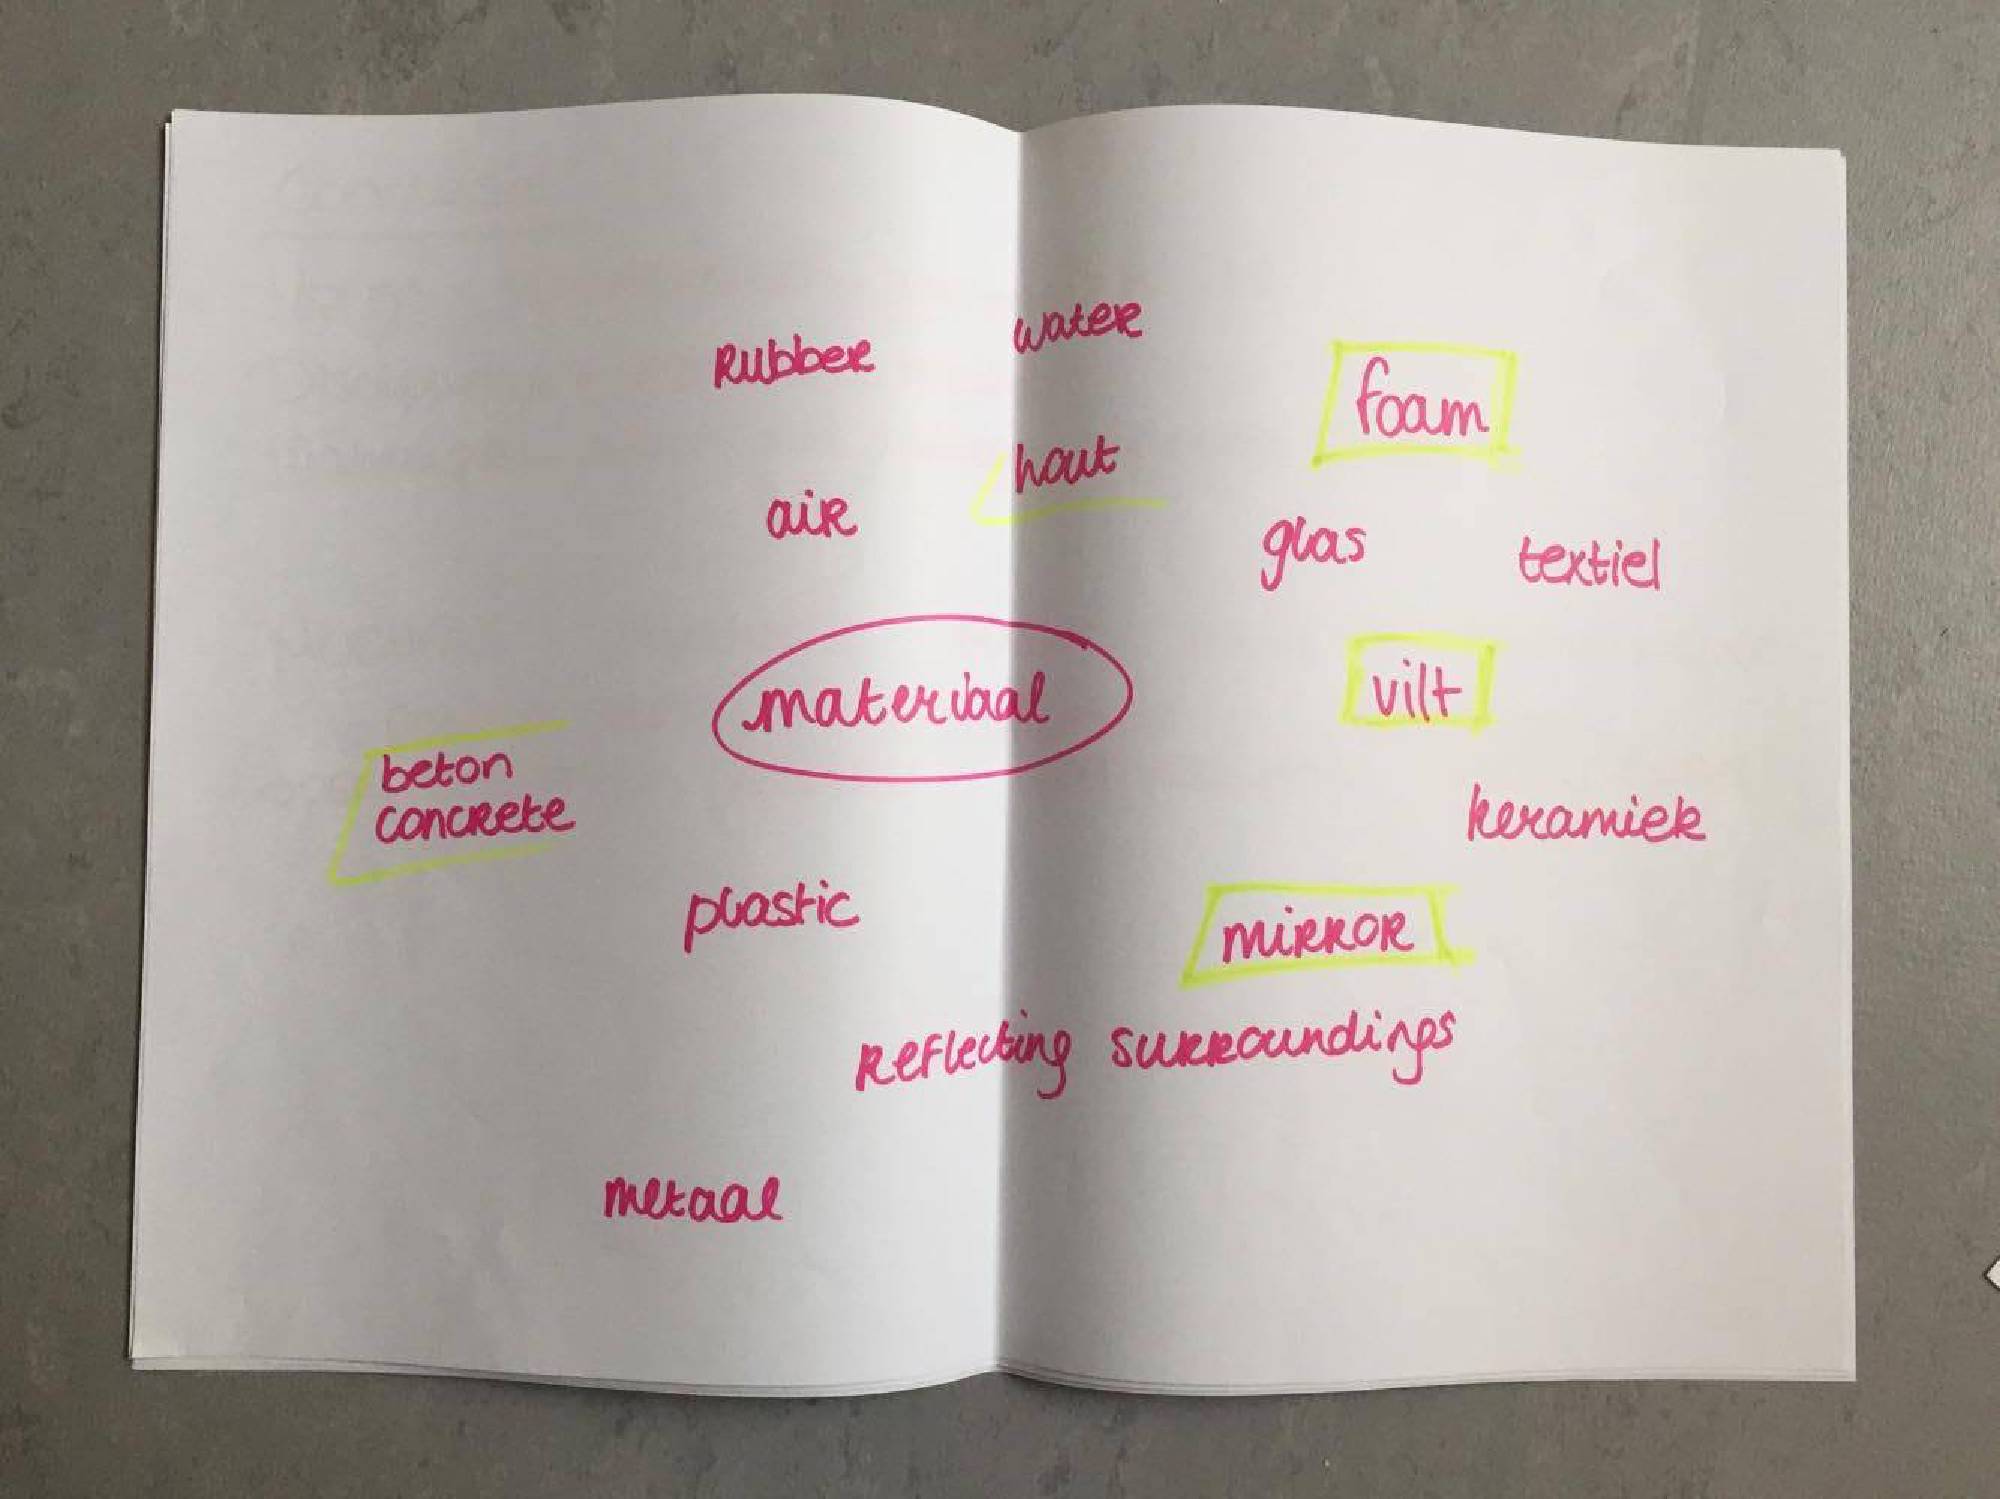 water
rubber
foam
hout
air
glas
textiel
materiaal
vilt
beton
concrete
keramiek
plastic
mirror
reflecting surroundings
metaal